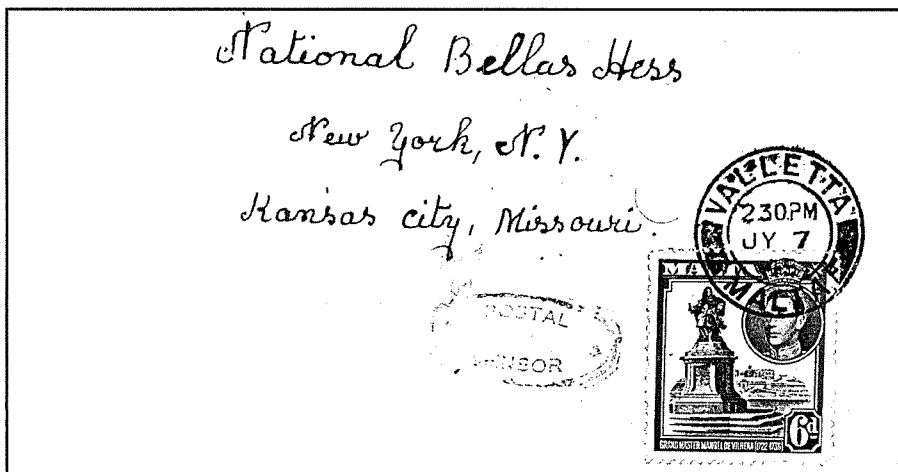 National Bellas Hess
New York, N.Y.
Kansas city, Missouri.
VALLETTA
2.30.PM
JY 7
MALTA
POSTAL
MALTA
GRAND MASTER MANOEL DE VILHENA 1722-1736
6d